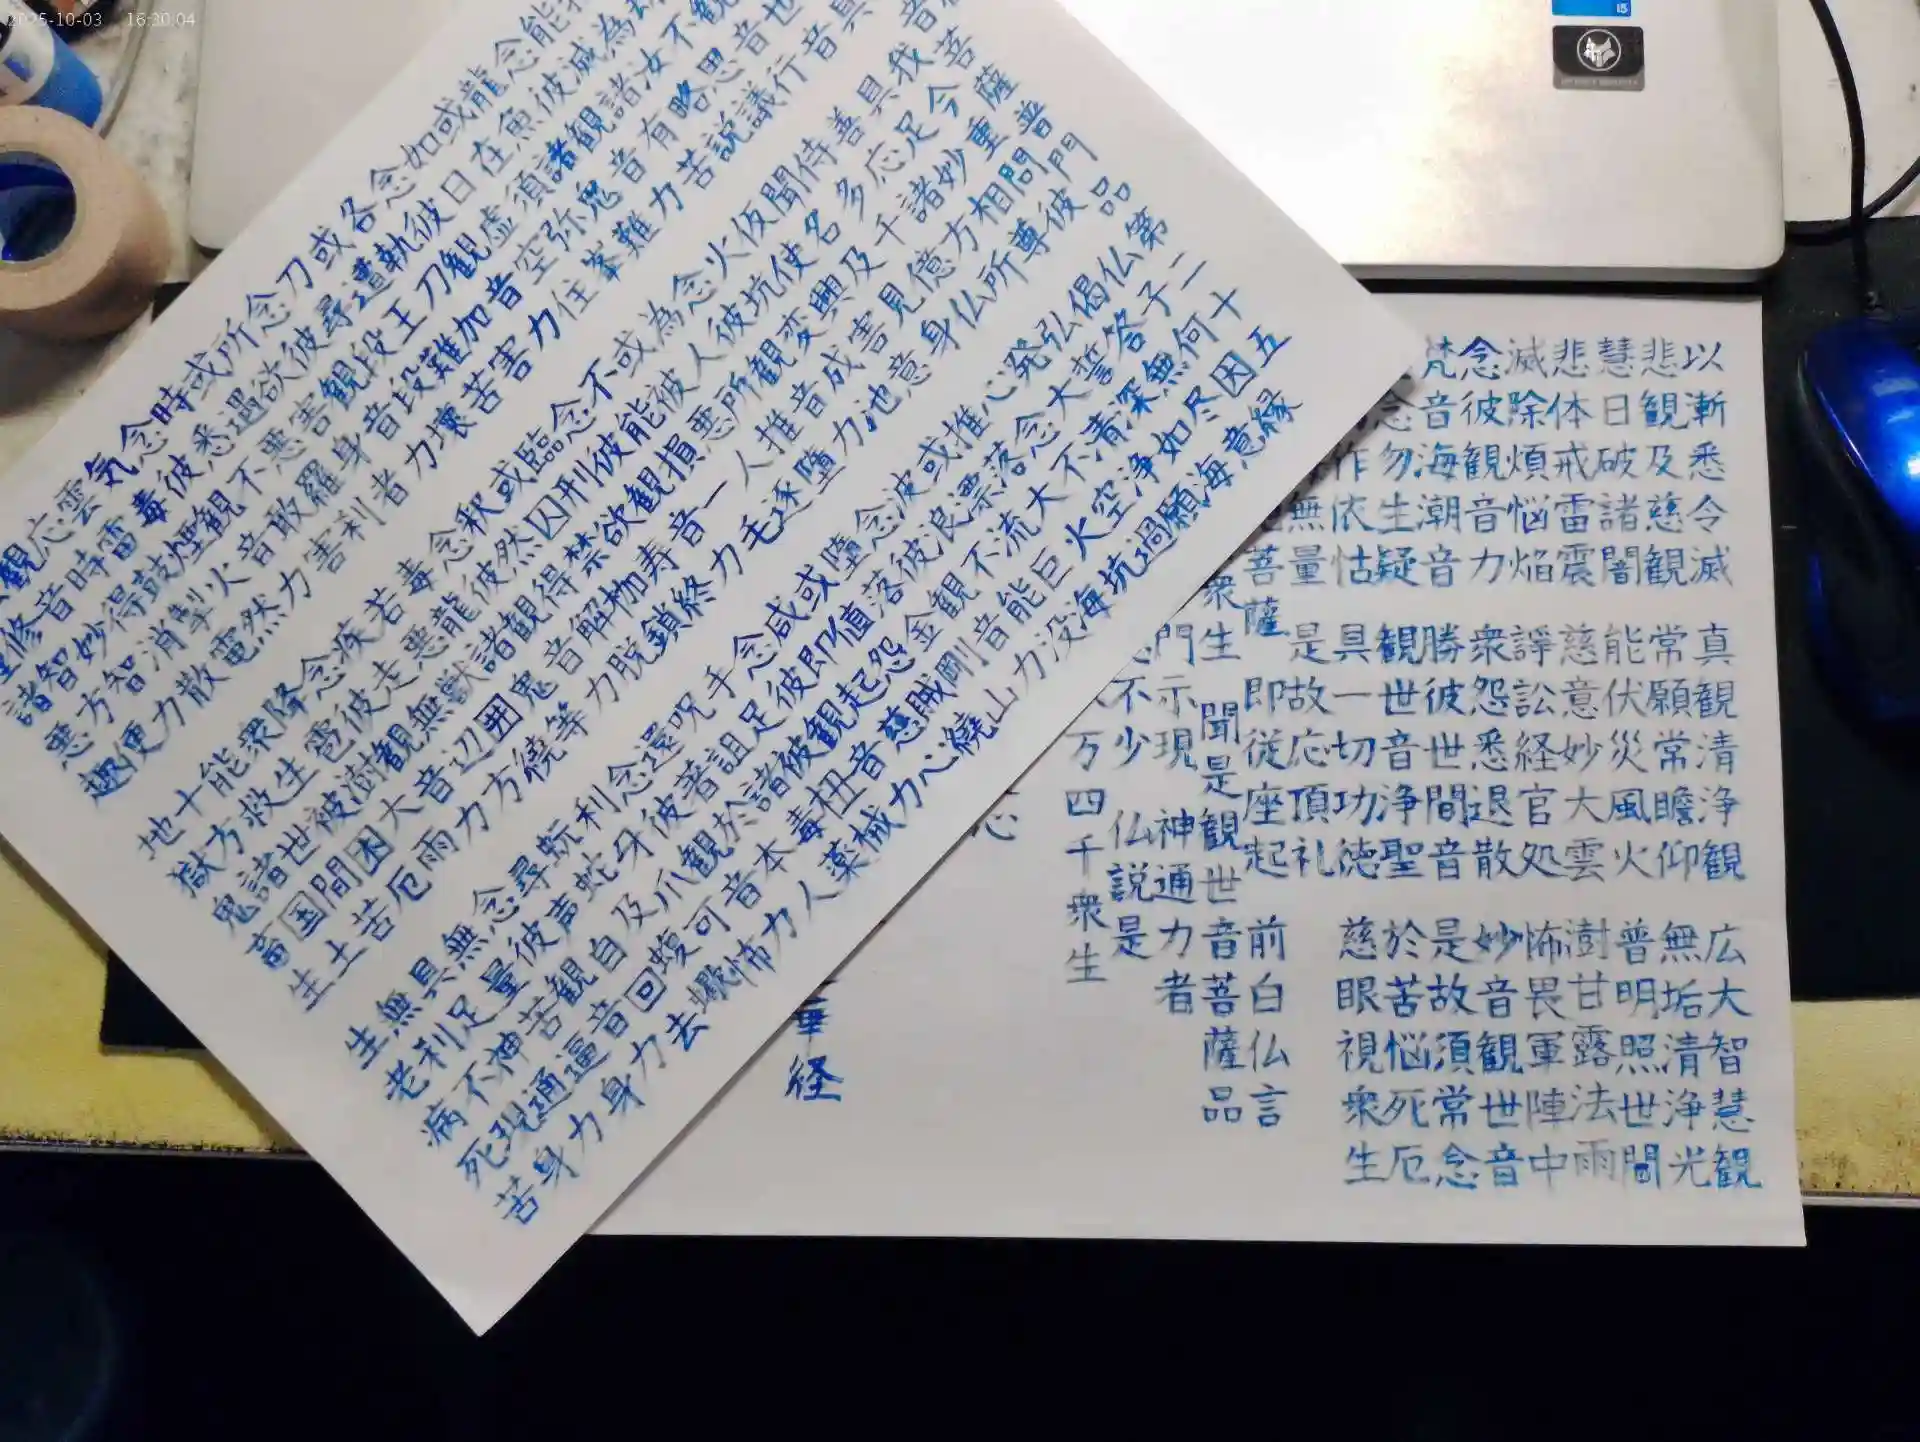 音菩薩普門品第二十五
具 我今重問彼 仏子何因縁
音 具足妙相尊 偈答無尽意
観音行 善応諸方所 弘誓深如海
不思議 侍多千億仏 発大清浄願
為汝略説 聞名及見身 心念不空過
能滅諸有苦 仮使興害意 推落大火坑
念彼観音力 火坑変成池 或漂流巨海
龍魚諸鬼難 念彼観音力 波浪不能没
或在須弥峯 為人所推墮 念彼観音力
如日虚空住 或被悪人逐 墮落金剛山
念彼観音力 不能損一毛 或値怨賊繞
各執刀加害 念彼観音力 咸即起慈心
或遭王難苦 臨刑欲寿終 念彼観音力
刀尋段段壊 或囚禁枷鎖 手足被杻械
念彼観音力 釈然得解脱 呪詛諸毒薬
所欲害身者 念彼観音力 還著於本人
或遇悪羅刹 毒龍諸鬼等 念彼観音力
時悉不敢害 若悪獣囲繞 利爪可怖
念彼観音力 疾走無辺方 蚖蛇及蝮蠍
気毒煙火然 念彼観音力 尋声自回去
雲雷鼓掣電 降雹澍大雨 念彼観音力
応時得消散 衆生被困厄 無量苦逼身
観音妙智力 能救世間苦 具足神通力
修智方便 十方諸国土 無利不現身
諸悪趣 地獄鬼畜生 生老病死苦
以漸悉令滅 真観清浄観 広大智慧観
悲観及慈観 常願常瞻仰 無垢清浄光
慧日破諸闇 能伏災風火 普明照世間
悲体戒雷震 慈意妙大雲 澍甘露法雨
滅除煩悩焔 諍訟経官処 怖畏軍陣中
念彼観音力 衆怨悉退散 妙音観世音
梵音海潮音 勝彼世間音 是故須常念
念勿生疑 観世音浄聖 於苦悩死厄
作依怙 具一切功徳 慈眼視衆生
無量 是故応頂礼
菩薩 即従座起 前白仏言
衆生 聞是観世音菩薩品
門示現 神通力者
不少 仏説是
万四千衆生
心
華経